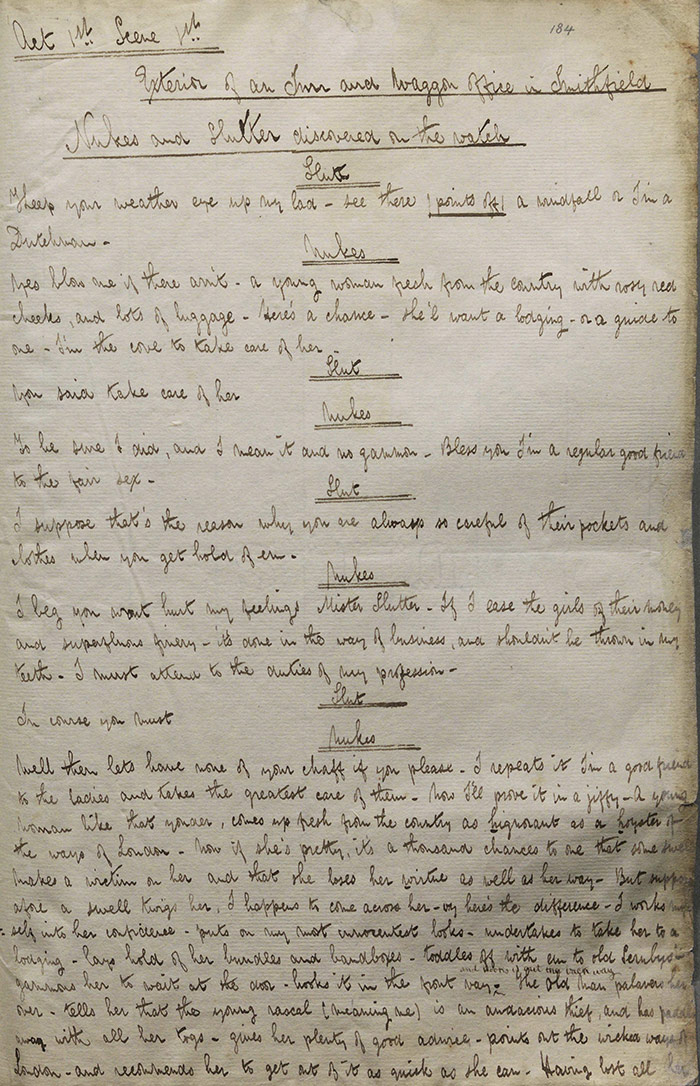 184
Act 1st Scene 1st
Exterior of an Inn and Waggon office in Smithfield
Nukes and Slutter discovered on the watch
Slut
Kheep your weather eye up my lad - see there (points off) a windfall or I'm a
Dutchman -
Nukes
Yes blow me if there ain't - a young woman fresh from the country with rosy red
cheeks, and lots of luggage - Here's a chance - she'll want a lodging - or a guide to
one - I'm the cove to take care of her
Slut
You said take care of her
Nukes
To be sure I did, and I mean it and no gammon - Bless you I'm a regular good friend
to the fair sex -
Slut
I suppose that's the reason why you are always so careful of their pockets and
clothes when you get hold of em -
Nukes
I beg you wont hurt my feelings Mister Slutter - If I ease the girls of their money
and superfluous finery - it's done in the way of business, and shouldn't be thrown in my
teeth - I must attend to the duties of my profession -
Slut
In course you must
Nukes
Well then lets have none of your chaff if you please - I repeats it I'm a good friend
to the ladies and takes the greatest care of them - Now I'll prove it in a jiffy - A young
woman like that yonder, comes up fresh from the country as hignorant as a hoyster of
the ways of London - now if she's pretty, it's a thousand chances to one that some swell
makes a victim on her and that she loses her virtue as well as her way - But suppose
afore a swell twigs her, I happens to come across her - vy here's the difference - I works my
self into her confidence - puts on my most innocentest looks - undertakes to take her to a
lodging - lays hold of her bundles and bandboxes - toddles off with em to old
gammons her to wait at the door - hooks it in the front way - The old man palavers her
over - tells her that the young rascal (meaning me) is an audacious thief, and has
away with all her togs - gives her plenty of good advice - points out the wicked ways of
London - and recommends her to get out of it as quick as she can - Having lost all her